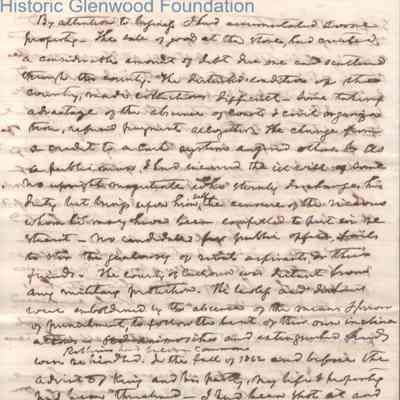 Historic Glenwood Foundation
By attention to business I had accumulated some
property – The sale of goods at the store, had created
a considerable amount of debt due me and scattered
through the country. The disturbed condition of the
country, made collections difficult – Some taking
advantage of the absence of courts & civil organiza
tion, refused payment altogether. The change from
a credit to a cash system angered others. As
a public man, I had incurred the ill will of some
no upright magistrate who sternly discharges his
duty, but brings upon him the censure of the vicious
whom he may have been compelled to put in re
straint – no candidate for public office, fails
to stir the jealousy of rival aspirants & their
friends. The county of was distant from
any military protection. The lawless and
were emboldened by the absence of the means
of punishment, to follow the bent of their own inclin
ations – animosities and extinguished feuds
were rekindled. In the fall of 1862 and before the
advent of King and his party, my life & property
had been threatened – I had been shot at and